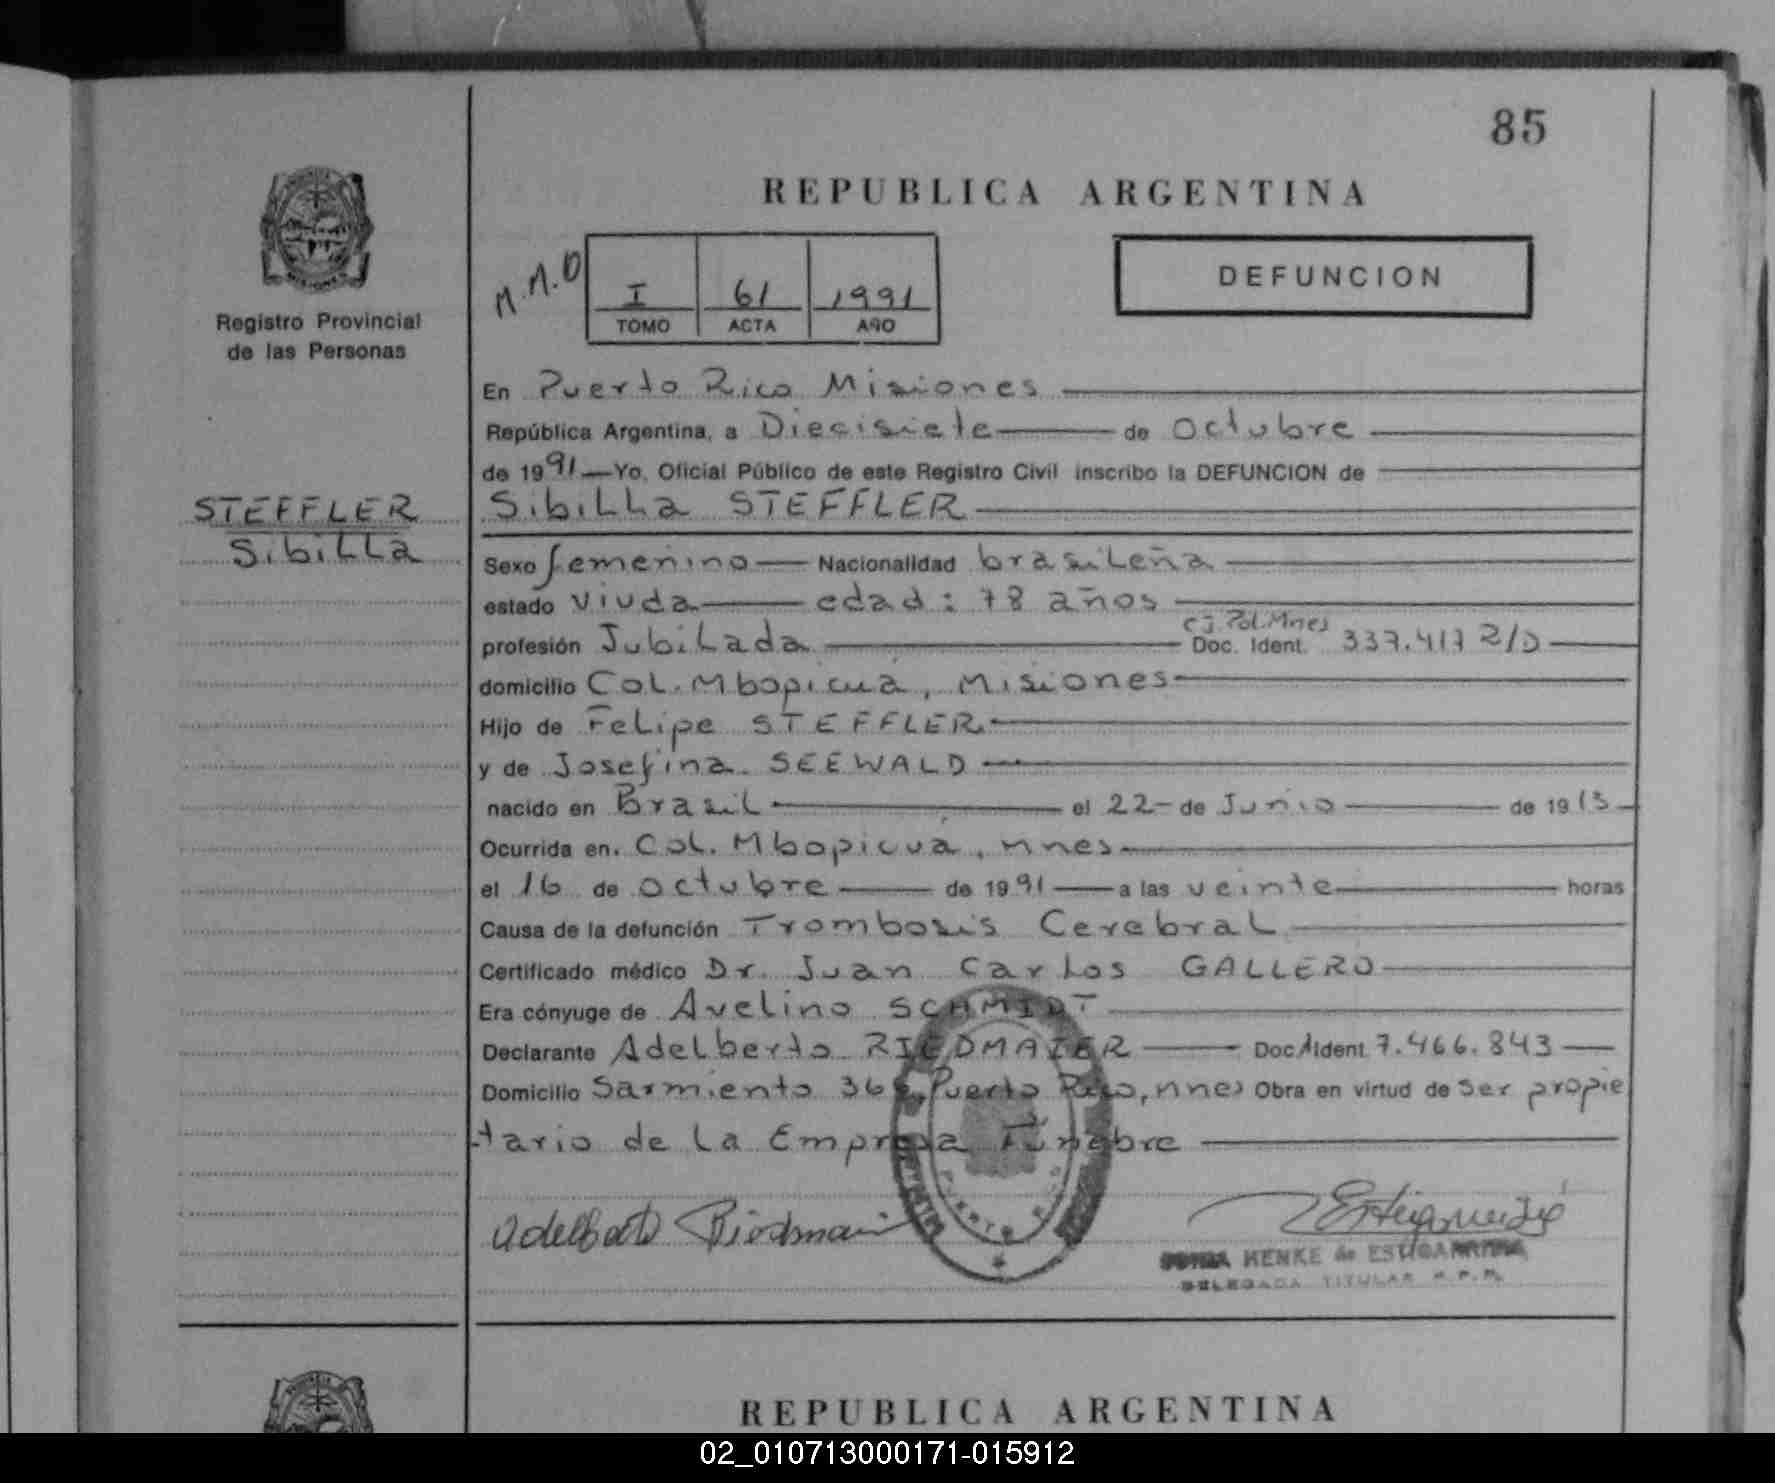 85
REPUBLICA ARGENTINA
M.M.O
I 61 1991
TOMO ACTA AÑO
DEFUNCION
Registro Provincial
de las Personas
En Puerto Rico Misiones
República Argentina, a Diecisiete de Octubre
de 1991 Yo, Oficial Público de este Registro Civil inscribo la DEFUNCION de
STEFFLER
Sibilla
Sibilla STEFFLER
Sexo femenino Nacionalidad brasileña
estado viuda edad: 78 años
profesión Jubilada Doc. Ident. CJ. Pol. Mnes 337.417
domicilio Col. Mbopicuá, Misiones
Hijo de Felipe STEFFLER
y de Josefina SEEWALD
nacido en Brasil el 22 de Junio de 1913
Ocurrida en. Col. Mbopicuá, Mnes
el 16 de octubre de 1991 a las veinte horas
Causa de la defunción Trombosis Cerebral
Certificado médico Dr. Juan Carlos GALLERO
Era cónyuge de Avelino SCHMIDT
Declarante Adelberto RIEDMAIER Doc. Ident. 7.466.843
Domicilio Sarmiento Puerto Rico, Mnes Obra en virtud de ser propie
tario de la Empresa Fúnebre
HENKE de ESTIGARRIBIA
DELEGADA TITULAR R.P.P.
REPUBLICA ARGENTINA
02_010713000171-015912